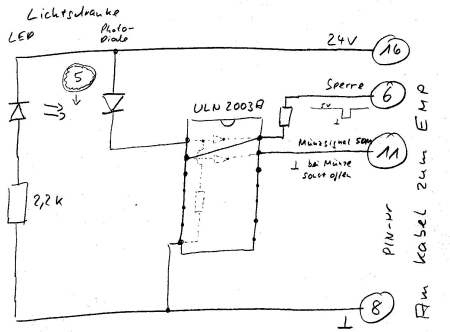 Lichtschranke
LED
Photo-
Diode
24V
16
5
Sperre
6
ULN 2003A
5V
Münzsignal 50M
11
⊥ bei Münze
sonst offen
2,2k
8
⊥
PIN-Nr
Am Kabel zum EMP